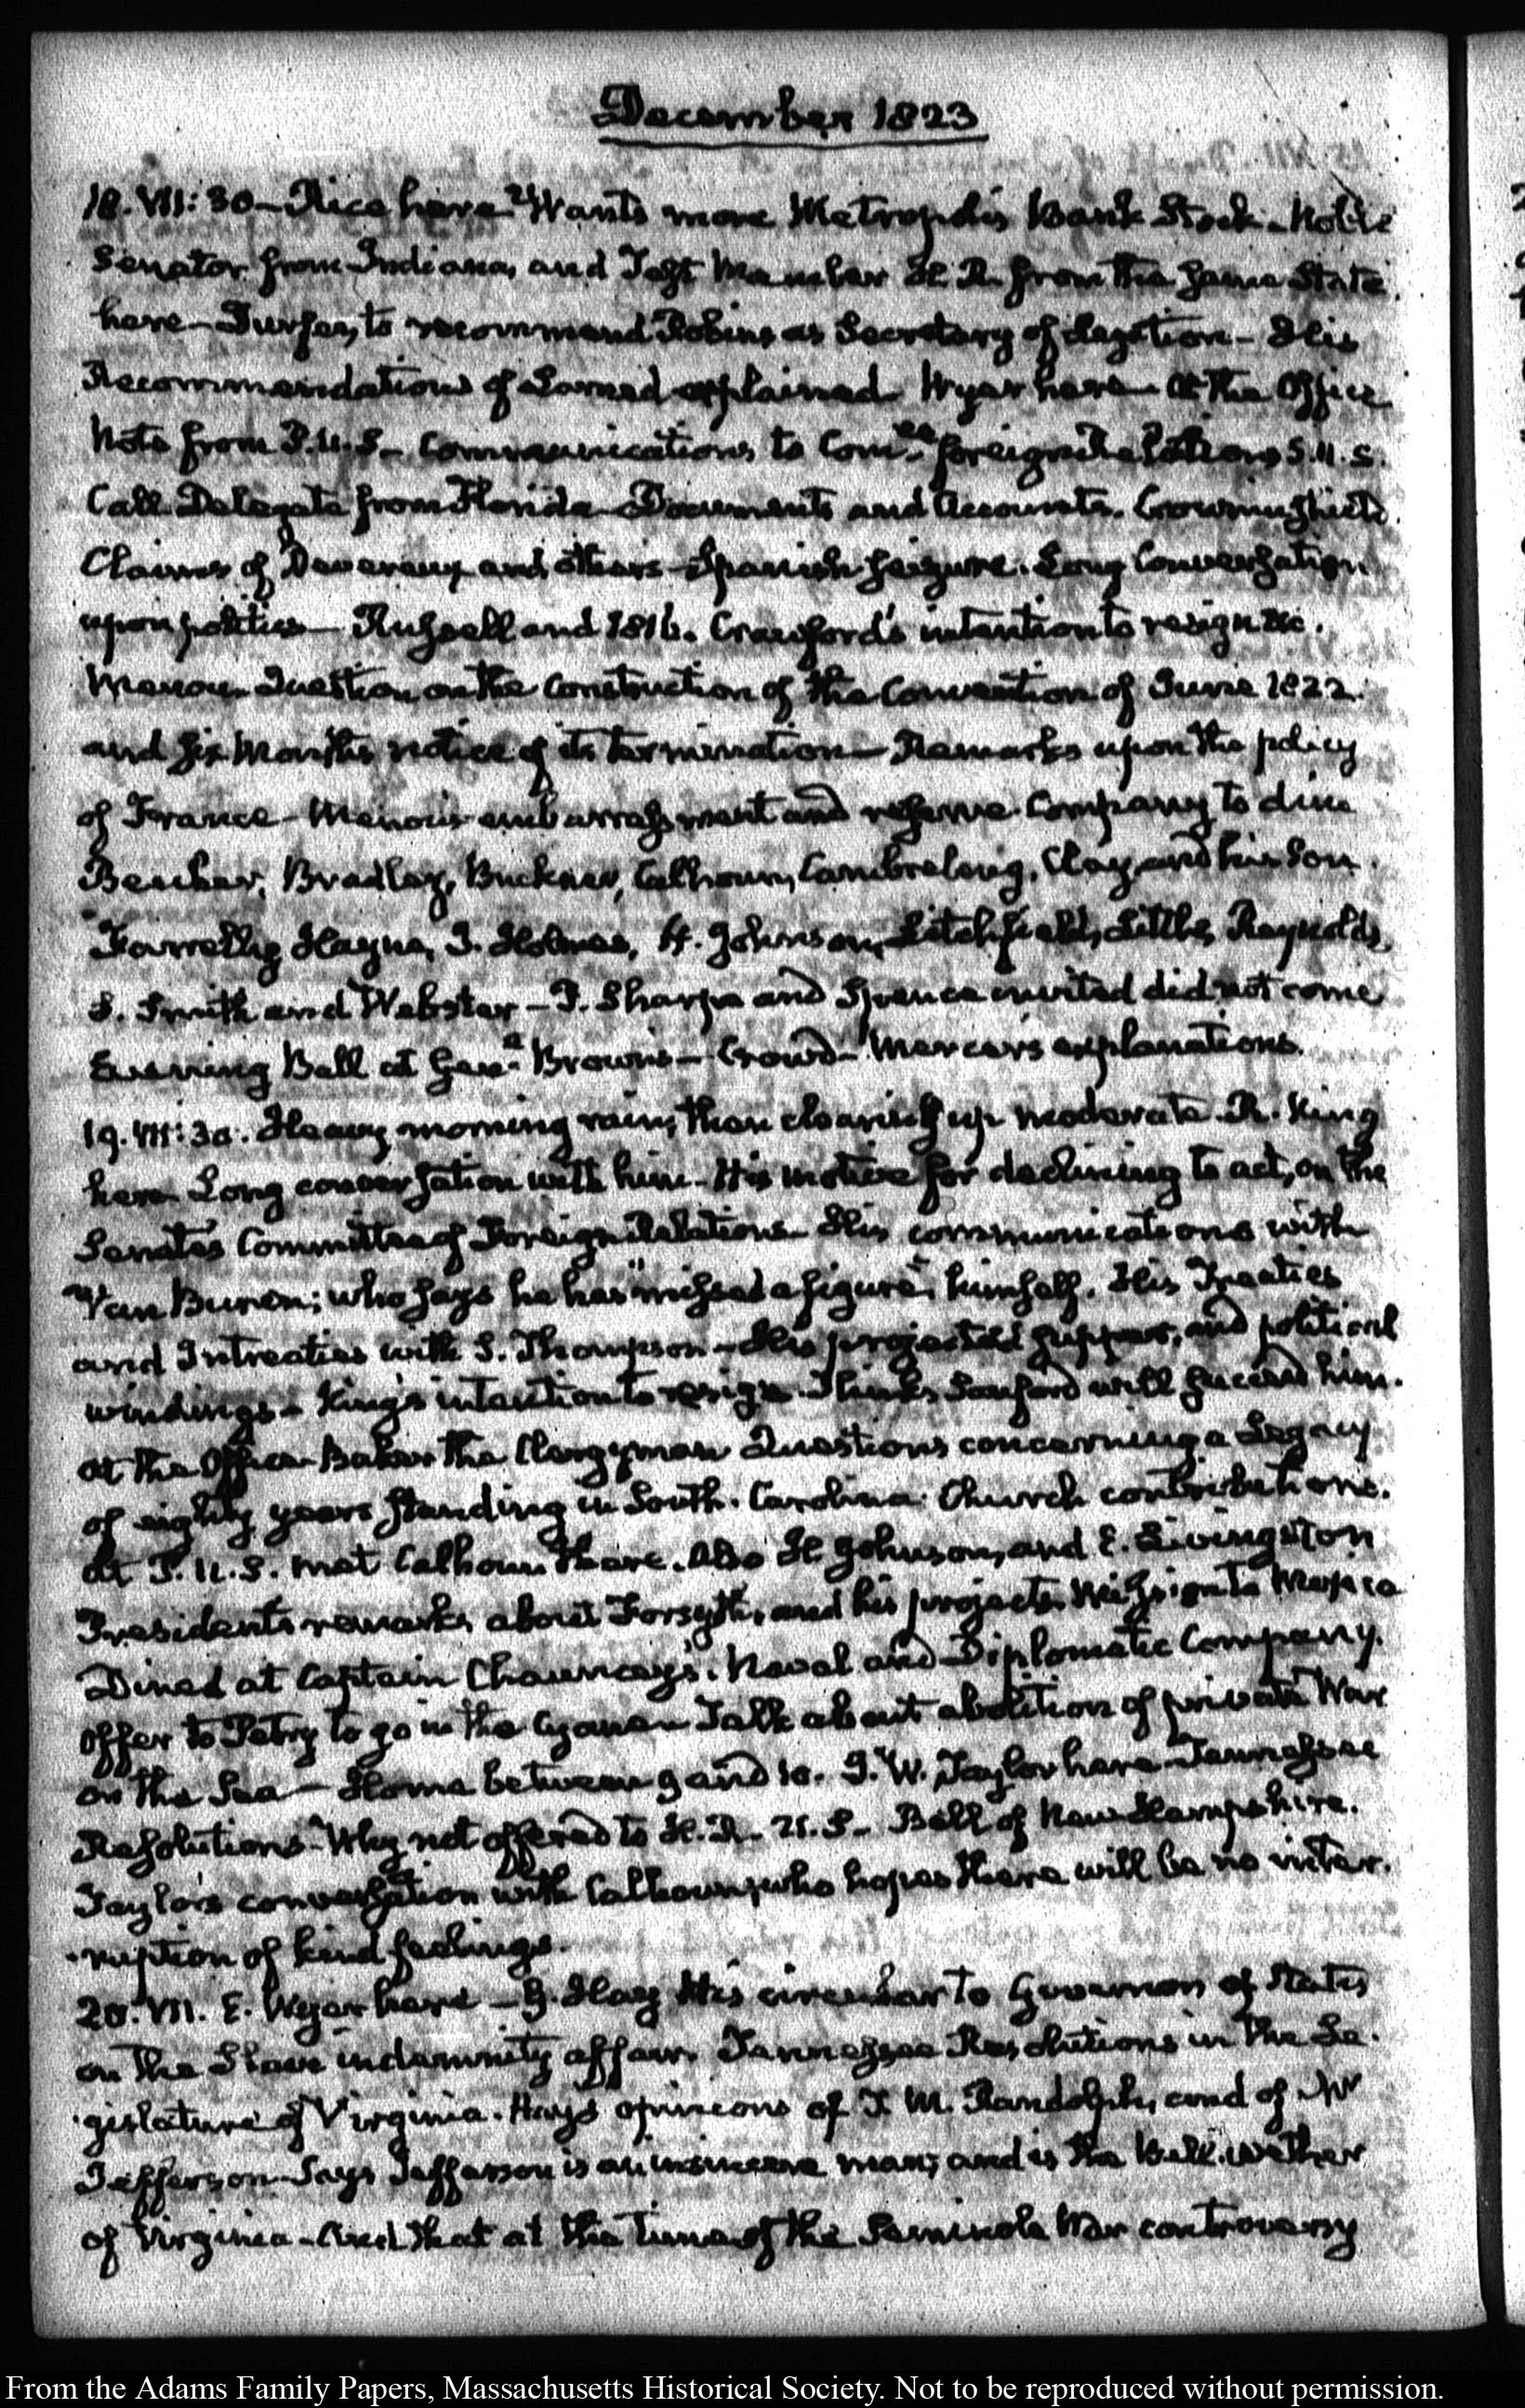 December 1823
18. VII:30 — Rice here Wants more Metropolis Bank Stock. Noble
Senator from Indiana, and Test Member H. R. from the same State
here — to recommend Robins as Secretary of Legation — His
Recommendation of Larned explained. Wyer here — At the Office
Note from P.U.S. — Communications to Com.ee foreign Relations S.U.S.
Call Delegate from Florida — Documents and Accounts. Crowninshield
Claims of Devereux and others — Spanish seizure. Long Conversation
upon politics — Russell and 1816. Crawford's intention to resign &c.
Menou — Question on the Construction of the Convention of June 1822
and six Months notice of its termination — Remarks upon the policy
of France — Menou's embarrassment and reserve. Company to dine
Beecher, Bradley, Buckner, Calhoun, Cambreleng, Clay and his Son
Farrelly, Hayne, J. Holmes, H. Johnson, Litchfield, Little, Reynolds,
S. Smith and Webster — P. Sharpe and Spence invited did not come
Evening Ball at Gen.l Brown's — Crowd — Mercer's explanations.
19. VII:30. Heavy morning rain, then clearing up moderate. R. King
here Long conversation with him — His motive for declining to act, on the
Senate's Committee of Foreign Relations — His communications with
Van Buren; who says he has "missed a figure" himself. His Treaties
and Intreaties with S. Thompson — His projected supper, and political
windings — King's intention to resign. Thinks Sanford will succeed him.
At the Office — Baker the Clergyman Questions concerning a Legacy
of eighty years standing in South. Carolina. Church contributions.
At P.U.S. met Calhoun there. Also H Johnson, and E. Livingston
President's remarks about Forsyth, and his projects. Mission to Mexico
Dined at Captain Chauncey's. Naval and Diplomatic Company.
Offer to Petry to go in the Cyane — Talk about abolition of private War
on the Sea — Home between 9 and 10. J. W. Taylor here — Tennessee
Resolutions — Why not offered to H.R. U.S. — Bell of New Hampshire.
Taylor's conversation with Calhoun, who hopes there will be no inter-
ruption of kind feelings.
20. VII. E. Wyer here — G. Hay His circular to Governors of States
on the Slave indemnity affair. Tennessee Resolutions in the Le-
gislature of Virginia. Hay's opinions of T. M. Randolph, and of Mr
Jefferson — Says Jefferson is an insincere man; and is the Bell-wether
of Virginia — And that at the time of the Seminole War controversy
From the Adams Family Papers, Massachusetts Historical Society. Not to be reproduced without permission.